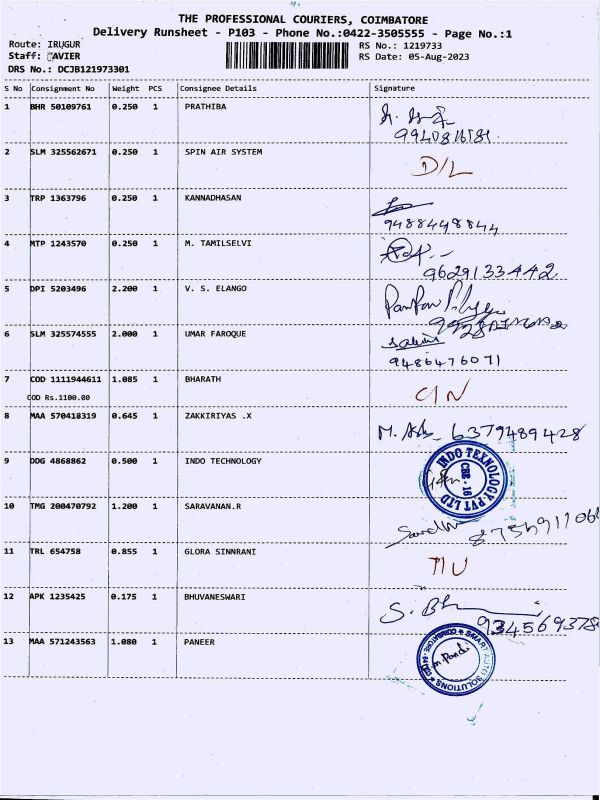 THE PROFESSIONAL COURIERS, COIMBATORE
Delivery Runsheet - P103 - Phone No.:0422-3505555 - Page No.:1
Route: IRUGUR
RS No.: 1219733
Staff: XAVIER
RS Date: 05-Aug-2023
DRS No.: DCJB121973301
S No Consignment No Weight PCS Consignee Details Signature
1 BHR 50109761 0.250 1 PRATHIBA
9940816181
2 SLM 325562671 0.250 1 SPIN AIR SYSTEM D/L
3 TRP 1363796 0.250 1 KANNADHASAN
9488448844
4 MTP 1243570 0.250 1 M. TAMILSELVI
9629133442
5 DPI 5203496 2.200 1 V. S. ELANGO
6 SLM 325574555 2.000 1 UMAR FAROQUE
9486476071
7 COD 1111944611 1.085 1 BHARATH
COD Rs.1100.00
8 MAA 570418319 0.645 1 ZAKKIRIYAS .X
6379489428
9 DDG 4868862 0.500 1 INDO TECHNOLOGY
INDO TEXNOLOGY PVT LTD
CBE - 16
10 TMG 200470792 1.200 1 SARAVANAN.R
11 TRL 654758 0.855 1 GLORA SINNRANI
12 APK 1235425 0.175 1 BHUVANESWARI
S. Bh
934569378
13 MAA 571243563 1.080 1 PANEER
SOLUTIONS